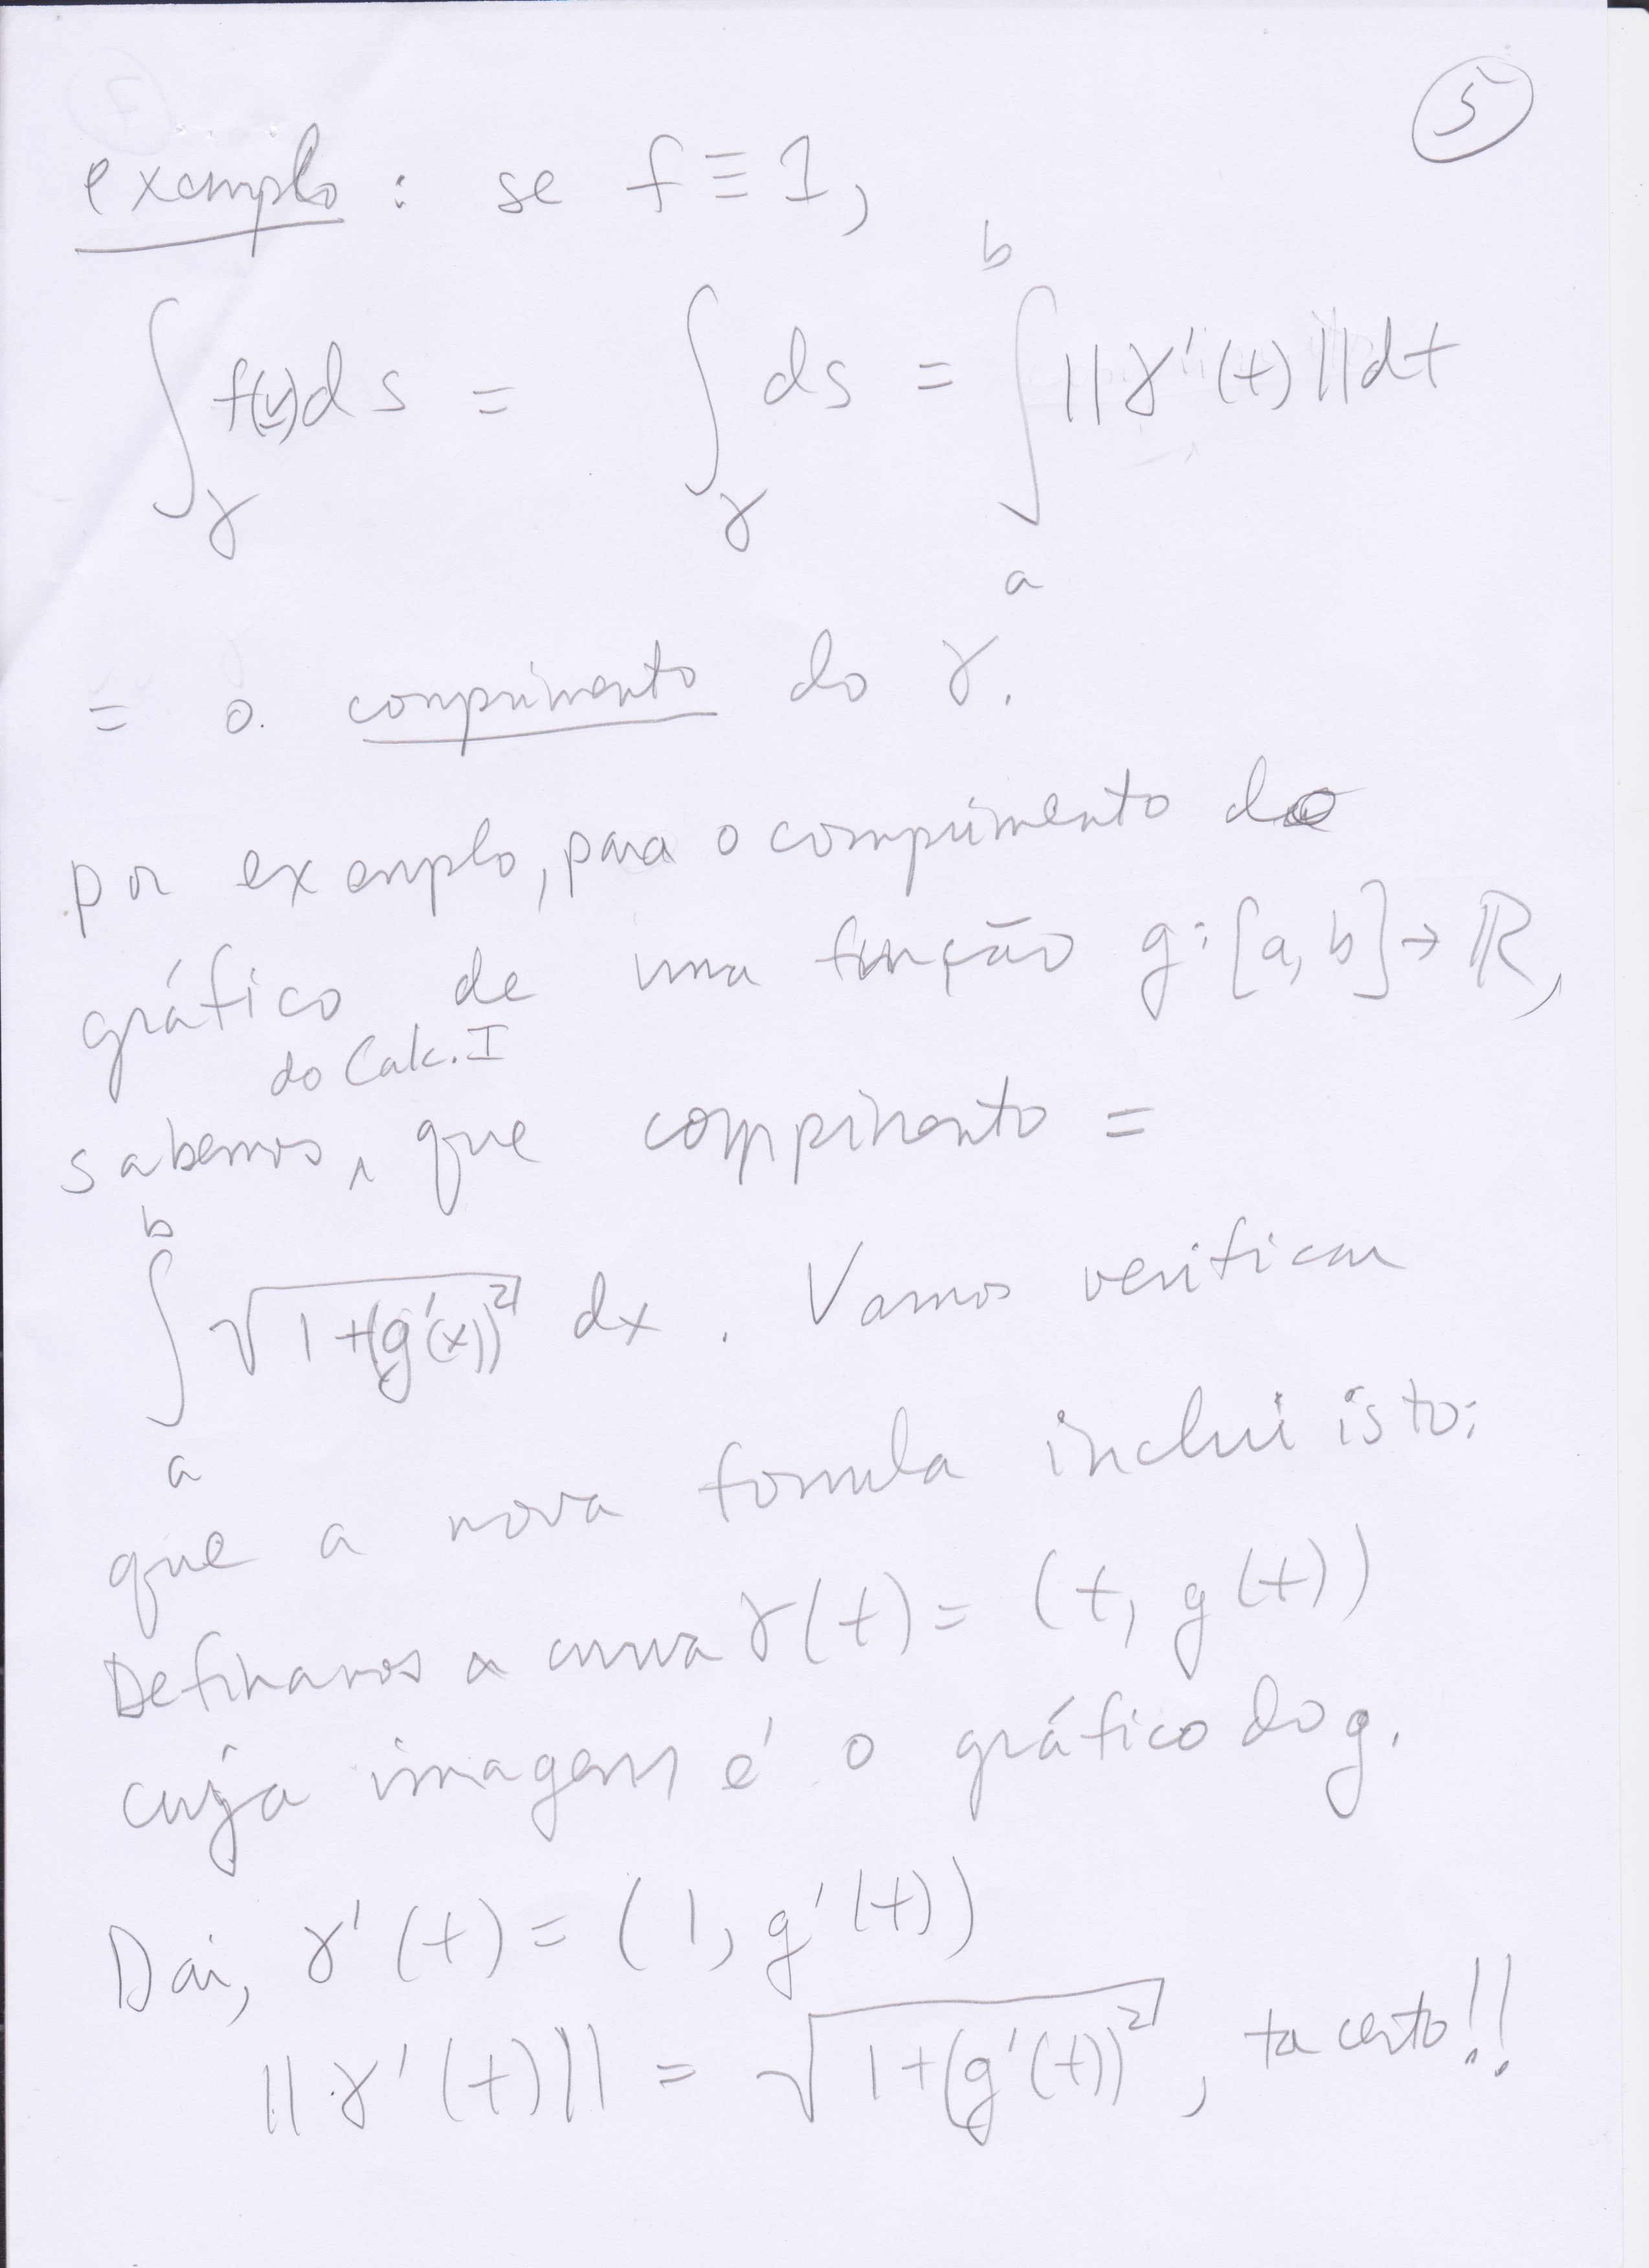 5
exemplo : se f ≡ 1,
∫_γ f(v)ds = ∫_γ ds = ∫_a^b ||γ'(t)||dt
= o comprimento do γ.
por exemplo, para o comprimento do
gráfico de uma função g:[a,b]→ℝ,
do Calc. I
sabemos ^ que comprimento =
∫_a^b √(1+(g'(x))²) dx . Vamos verificar
que a nova formula inclui isto:
Definamos a curva γ(t) = (t, g(t))
cuja imagem é o gráfico do g.
Daí, γ'(t) = (1, g'(t))
||γ'(t)|| = √(1+(g'(t))²), ta certo!!